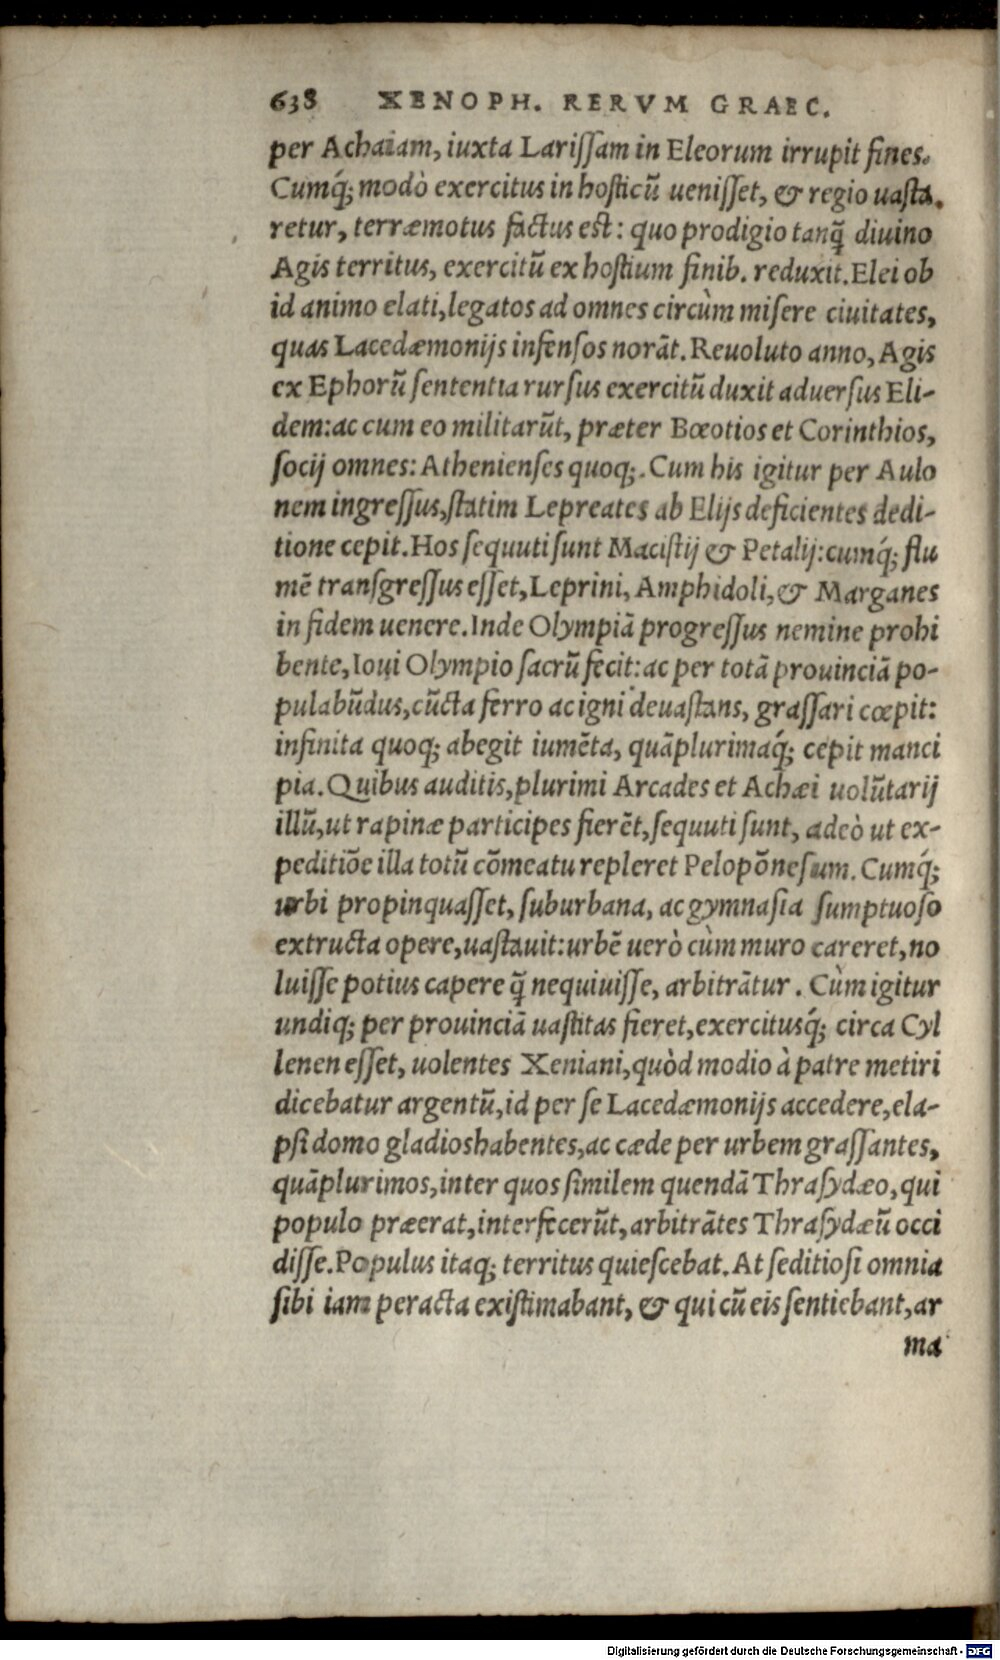 638 XENOPH. RERVM GRAEC.
per Achaiam, iuxta Larissam in Eleorum irrupit fines.
Cumq́; modò exercitus in hosticũ uenisset, & regio uasta.
retur, terræmotus factus est: quo prodigio tanq̃ diuino
Agis territus, exercitũ ex hostium finib. reduxit. Elei ob
id animo elati, legatos ad omnes circùm misere ciuitates,
quas Lacedæmonijs infensos norãt. Reuoluto anno, Agis
ex Ephorũ sententia rursus exercitũ duxit aduersus Eli-
dem: ac cum eo militarũt, præter Bœotios et Corinthios,
socij omnes: Athenienses quoq;. Cum his igitur per Aulo
nem ingressus, statim Lepreates ab Elijs deficientes dedi-
tione cepit. Hos sequuti sunt Macistij & Petalij: cumq́; flu
mẽ transgressus esset, Leprini, Amphidoli, & Marganes
in fidem uenere. Inde Olympiã progressus nemine prohi
bente, Ioui Olympio sacrũ fecit: ac per totã prouinciã po-
pulabũdus, cũcta ferro ac igni deuastans, grassari cœpit:
infinita quoq; abegit iumẽta, quãplurimaq́; cepit manci
pia. Quibus auditis, plurimi Arcades et Achæi uolũtarij
illũ, ut rapinæ participes fierẽt, sequuti sunt, adeò ut ex-
peditiõe illa totũ cõmeatu repleret Pelopõnesum. Cumq́;
urbi propinquasset, suburbana, ac gymnasia sumptuoso
extructa opere, uastauit: urbẽ uerò cùm muro careret, no
luisse potius capere q̃ nequiuisse, arbitrãtur. Cùm igitur
undiq; per prouinciã uastitas fieret, exercitusq́; circa Cyl
lenen esset, uolentes Xeniani, quòd modio à patre metiri
dicebatur argentũ, id per se Lacedæmonijs accedere, ela-
psi domo gladios habentes, ac cæde per urbem grassantes,
quãplurimos, inter quos similem quendã Thrasydæo, qui
populo præerat, interfecerũt, arbitrãtes Thrasydæũ occi
disse. Populus itaq; territus quiescebat. At seditiosi omnia
sibi iam peracta existimabant, & qui cũ eis sentiebant, ar
ma
Digitalisierung gefördert durch die Deutsche Forschungsgemeinschaft - DFG